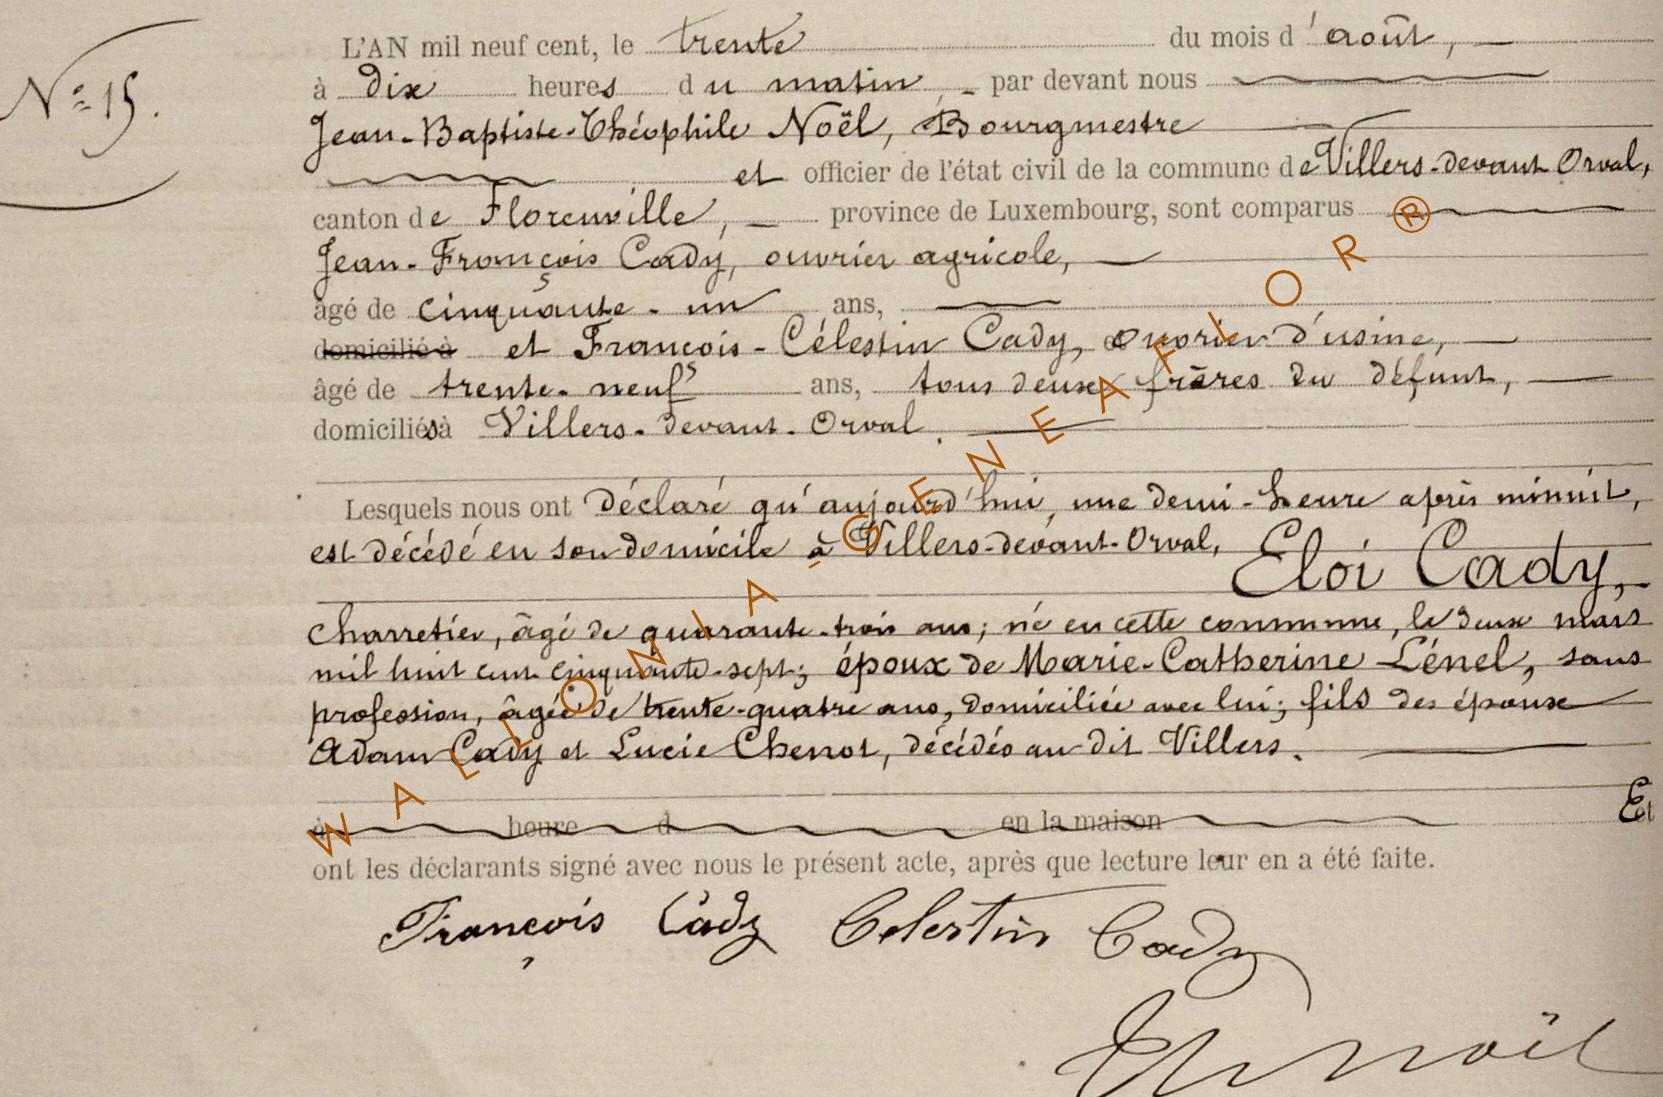 N° 15.
L'AN mil neuf cent, le trente du mois d'août,
à dix heures du matin, par devant nous
Jean-Baptiste-Théophile Noël, Bourgmestre
et officier de l'état civil de la commune de Villers-devant Orval,
canton de Florenville, province de Luxembourg, sont comparus
Jean-François Cady, ouvrier agricole,
âgé de cinquante-un ans,
domicilié à et François-Célestin Cady, ouvrier d'usine,
âgé de trente-neuf ans, tous deux frères du défunt,
domiciliés à Villers-devant-Orval.
Lesquels nous ont déclaré qu'aujourd'hui, une demi-heure après minuit,
est décédé en son domicile à Villers-devant-Orval, Eloi Cady,
charretier, âgé de quarante-trois ans; né en cette commune, le deux mars
mil huit cent cinquante-sept; époux de Marie-Catherine Lénel, sans
profession, âgée de trente-quatre ans, domiciliée avec lui; fils des époux
Adam Cady et Lucie Chenot, décédés au dit Villers.
à heure d en la maison Et
ont les déclarants signé avec nous le présent acte, après que lecture leur en a été faite.
François Cady Celestin Cady
Th Noël
WALLONIA-GENEAFLOR®